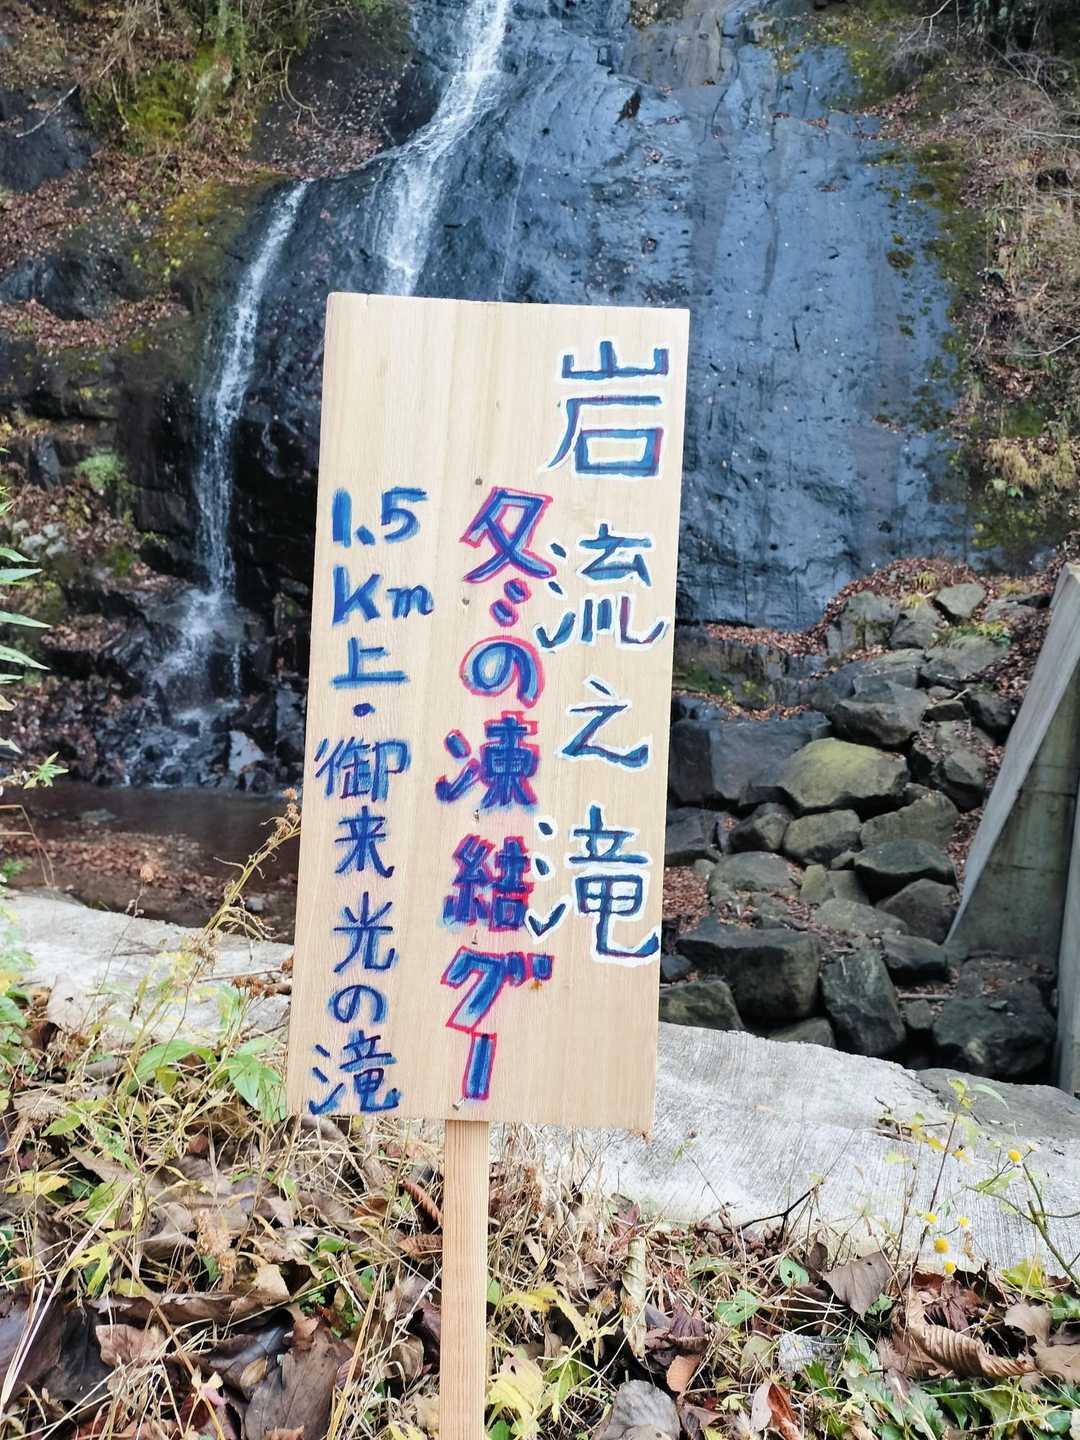 岩流之滝
冬の凍結グー
1.5Km上・御来光の滝